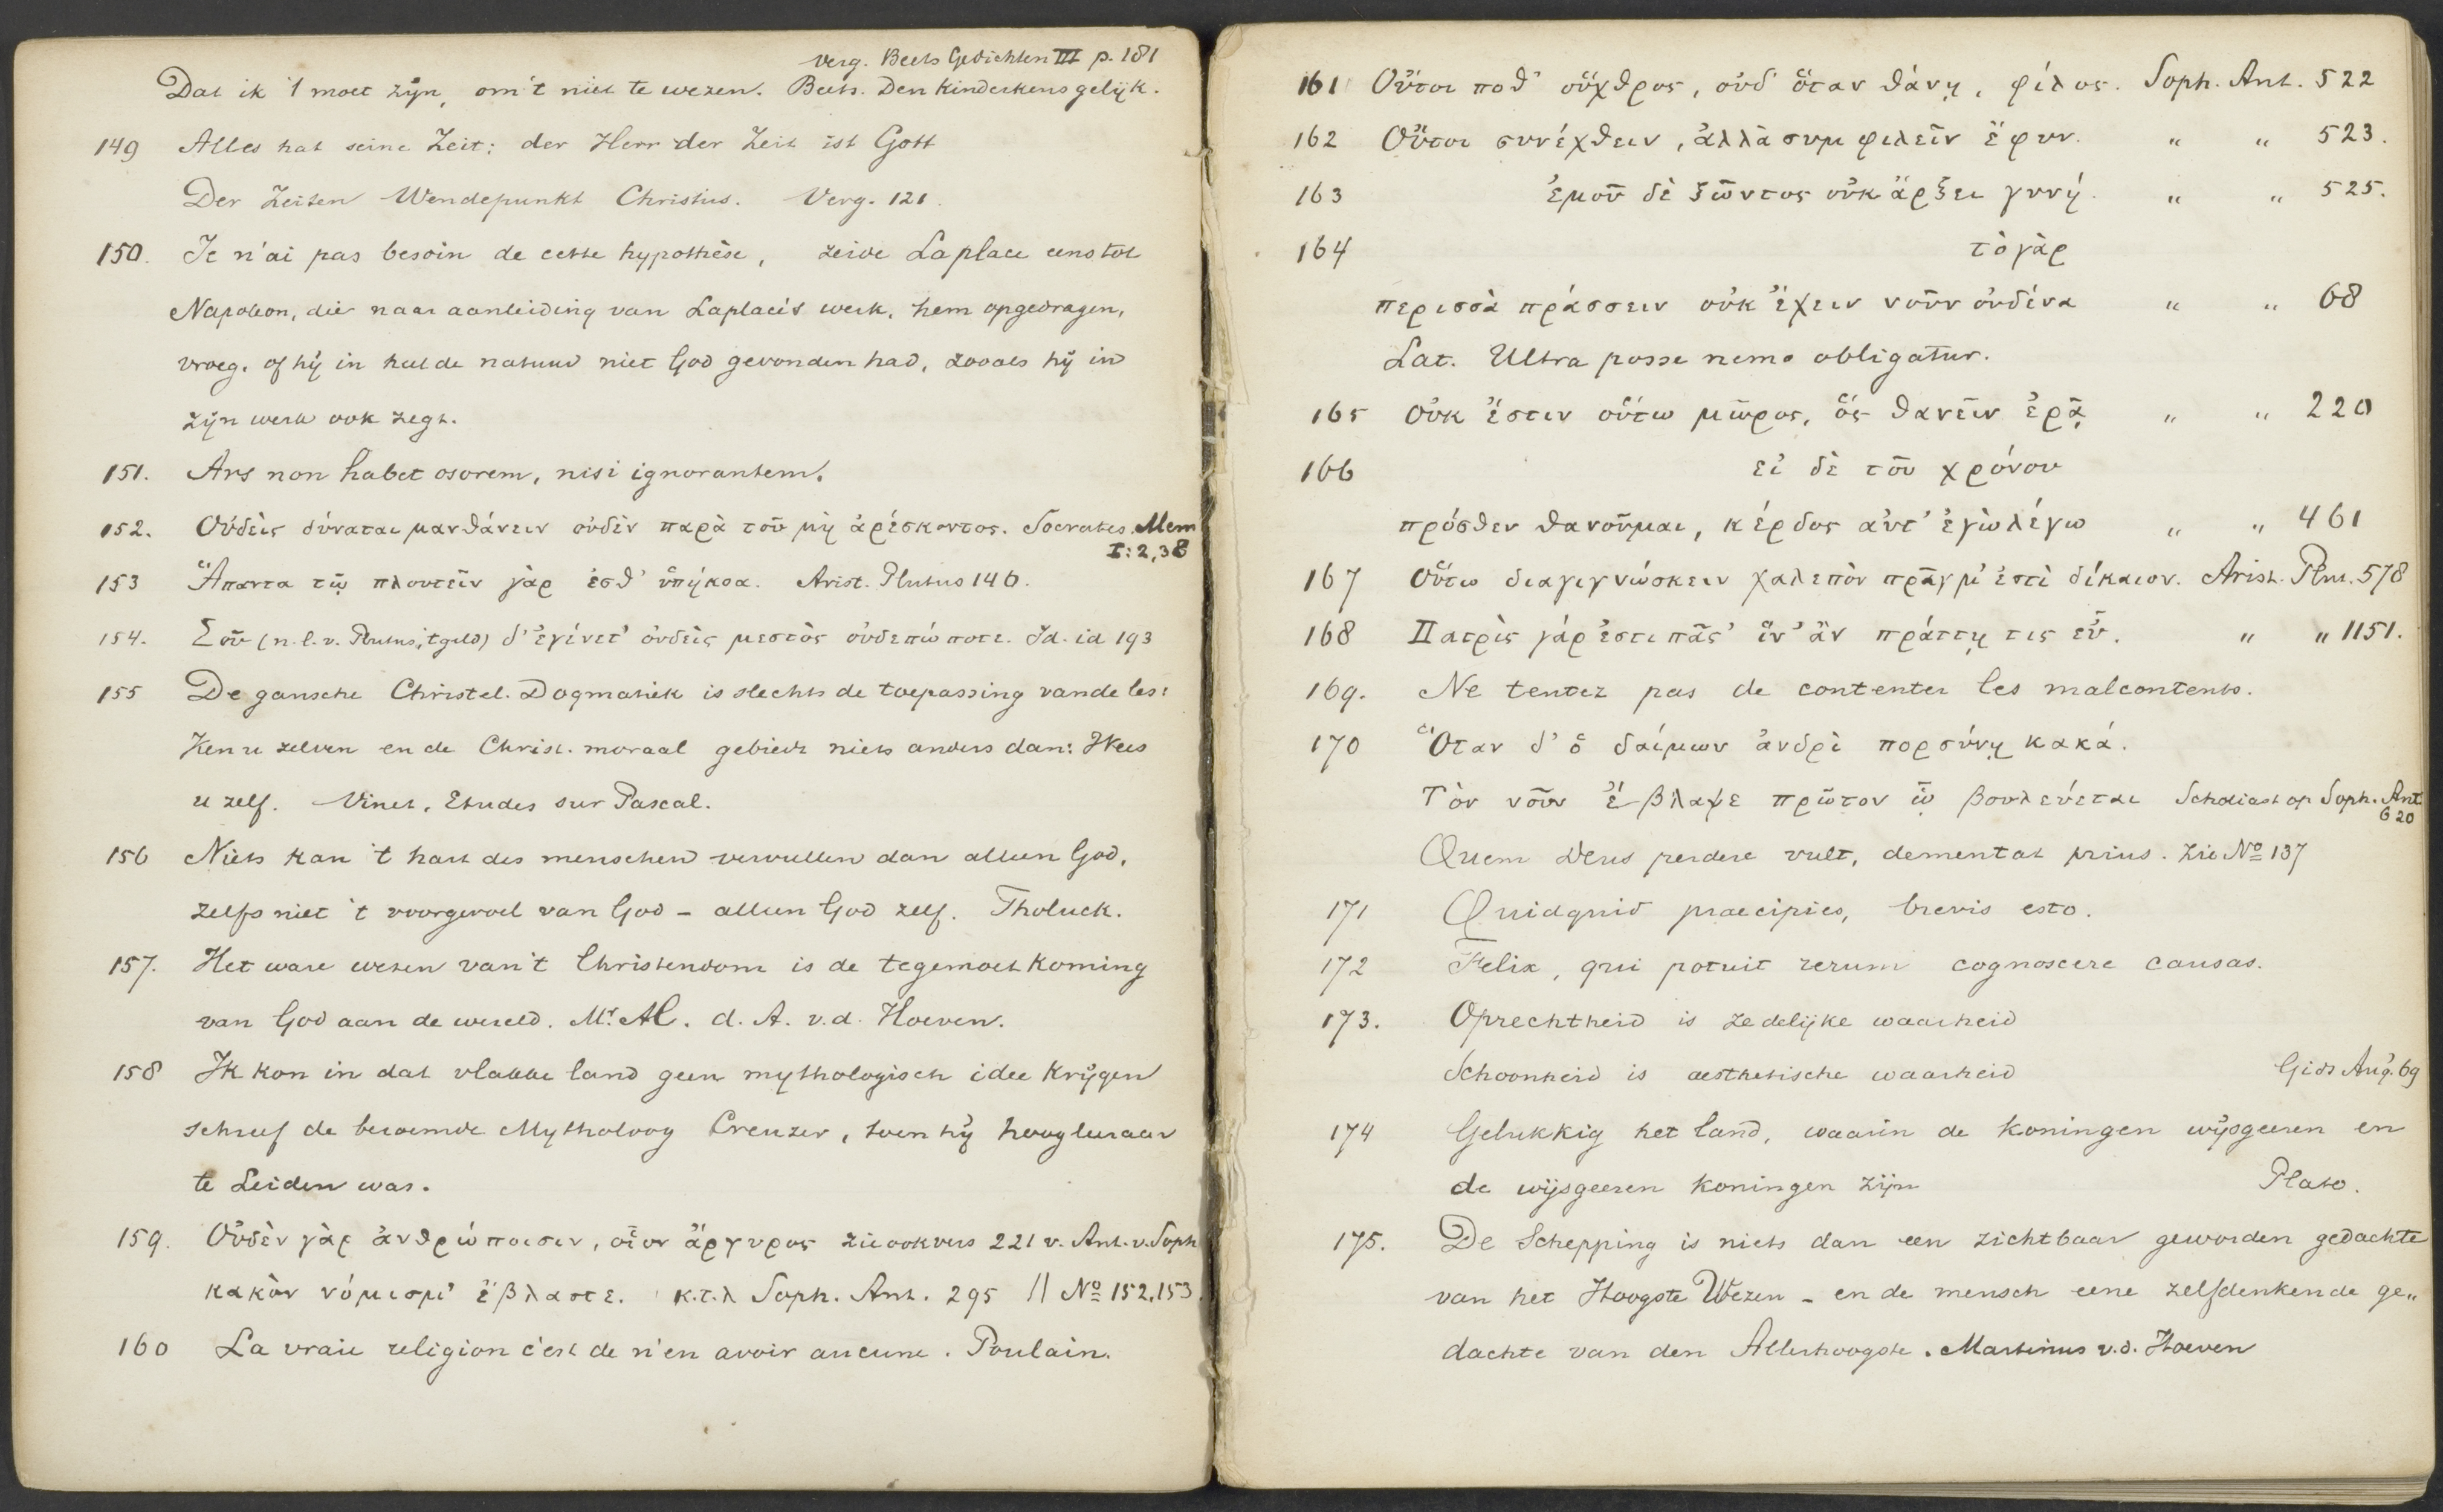 verg. Beets Gedichten III p. 181
Dat ik 't moet zijn, om 't niet te wezen. Beets. Den Kinderkens gelijk.
149 Alles hat seine Zeit; der Herr der Zeit ist Gott
Der Zeiten Wendepunkt Christus. Verg. 121.
150. Je n'ai pas besoin de cette hypothèse, zeide Laplace eens tot
Napoleon, die naar aanleiding van Laplace's werk, hem opgedragen,
vroeg, of hij in heel de natuur niet God gevonden had, zooals hij in
zijn werk ook zegt.
151. Ars non habet osorem, nisi ignorantem.
152. Οὐδεὶς δύναται μανθάνειν οὐδὲν παρὰ τοῦ μὴ ἀρέσκοντος. Socrates. Mem
I: 2,38
153 Ἅπαντα τῷ πλουτεῖν γὰρ ἐσθ' ὑπήκοα. Arist. Plutus 146.
154. Σοῦ (n.l.v. Plutus, 't geld) δ' ἐγένετ' οὐδεὶς μεστὸς οὐδεπώποτε. Id. id 193
155 De gansche Christel. Dogmatiek is slechts de toepassing van de les:
Ken u zelven en de Christ. moraal gebiedt niets anders dan: Wees
u zelf. Vinet, Etudes sur Pascal.
156 Niets kan 't hart des menschen vervullen dan alleen God,
zelfs niet 't voorgevoel van God – alleen God zelf. Tholuck.
157. Het ware wezen van 't Christendom is de tegemoetkoming
van God aan de wereld. Mr. Ab. d. A. v.d. Hoeven.
158 Ik kon in dat vlakke land geen mythologisch idee krijgen
schreef de beroemde Mytholoog Creuzer, toen hij hoogleeraar
te Leiden was.
159. Οὐδὲν γὰρ ἀνθρώποισιν, οἷον ἄργυρος zie ook vers 221 v. Ant. v. Soph
κακὸν νόμισμ' ἔβλαστε. κ.τ.λ Soph. Ant. 295 || No 152, 153.
160 La vraie religion c'est de n'en avoir aucune. Poulain.
161 Οὔτοι ποθ' οὕχθρος, οὐδ' ὅταν θάνῃ, φίλος. Soph. Ant. 522
162 Οὔτοι συνέχθειν, ἀλλὰ συμφιλεῖν ἔφυν. " " 523.
163 ἐμοῦ δὲ ζῶντος οὐκ ἄρξει γυνή. " " 525.
164 τὸ γὰρ
περισσὰ πράσσειν οὐκ ἔχειν νοῦν οὐδένα " " 68
Lat. Ultra posse nemo obligatur.
165 Οὐκ ἔστιν οὕτω μῶρος, ὅς θανεῖν ἐρᾷ " " 220
166 εἰ δὲ τοῦ χρόνου
πρόσθεν θανοῦμαι, κέρδος αὔτ' ἐγὼ λέγω " " 461
167 Οὕτω διαγιγνώσκειν χαλεπὸν πρᾶγμ' ἐστὶ δίκαιον. Arist. Plut. 578
168 Πατρὶς γάρ ἐστι πᾶσ' ἵν' ἂν πράττῃ τις εὖ. " " 1151.
169. Ne tentez pas de contenter les malcontents.
170 Ὅταν δ' ὁ δαίμων ἀνδρὶ πορσύνῃ κακά.
Τὸν νοῦν ἔβλαψε πρῶτον ᾧ βουλεύεται Scholiast op Soph. Ant
620
Quem Deus perdere vult, dementat prius. Zie No 137
171 Quidquid praecipies, brevis esto.
172 Felix, qui potuit rerum cognoscere causas.
173. Oprechtheid is zedelijke waarheid
Schoonheid is aesthetische waarheid Gids Aug. 69
174 Gelukkig het land, waarin de koningen wijsgeeren en
de wijsgeeren koningen zijn Plato.
175. De Schepping is niets dan een zichtbaar geworden gedachte
van het Hoogste Wezen – en de mensch eene zelfdenkende ge„
dachte van den Allerhoogste. Martinus v.d. Hoeven